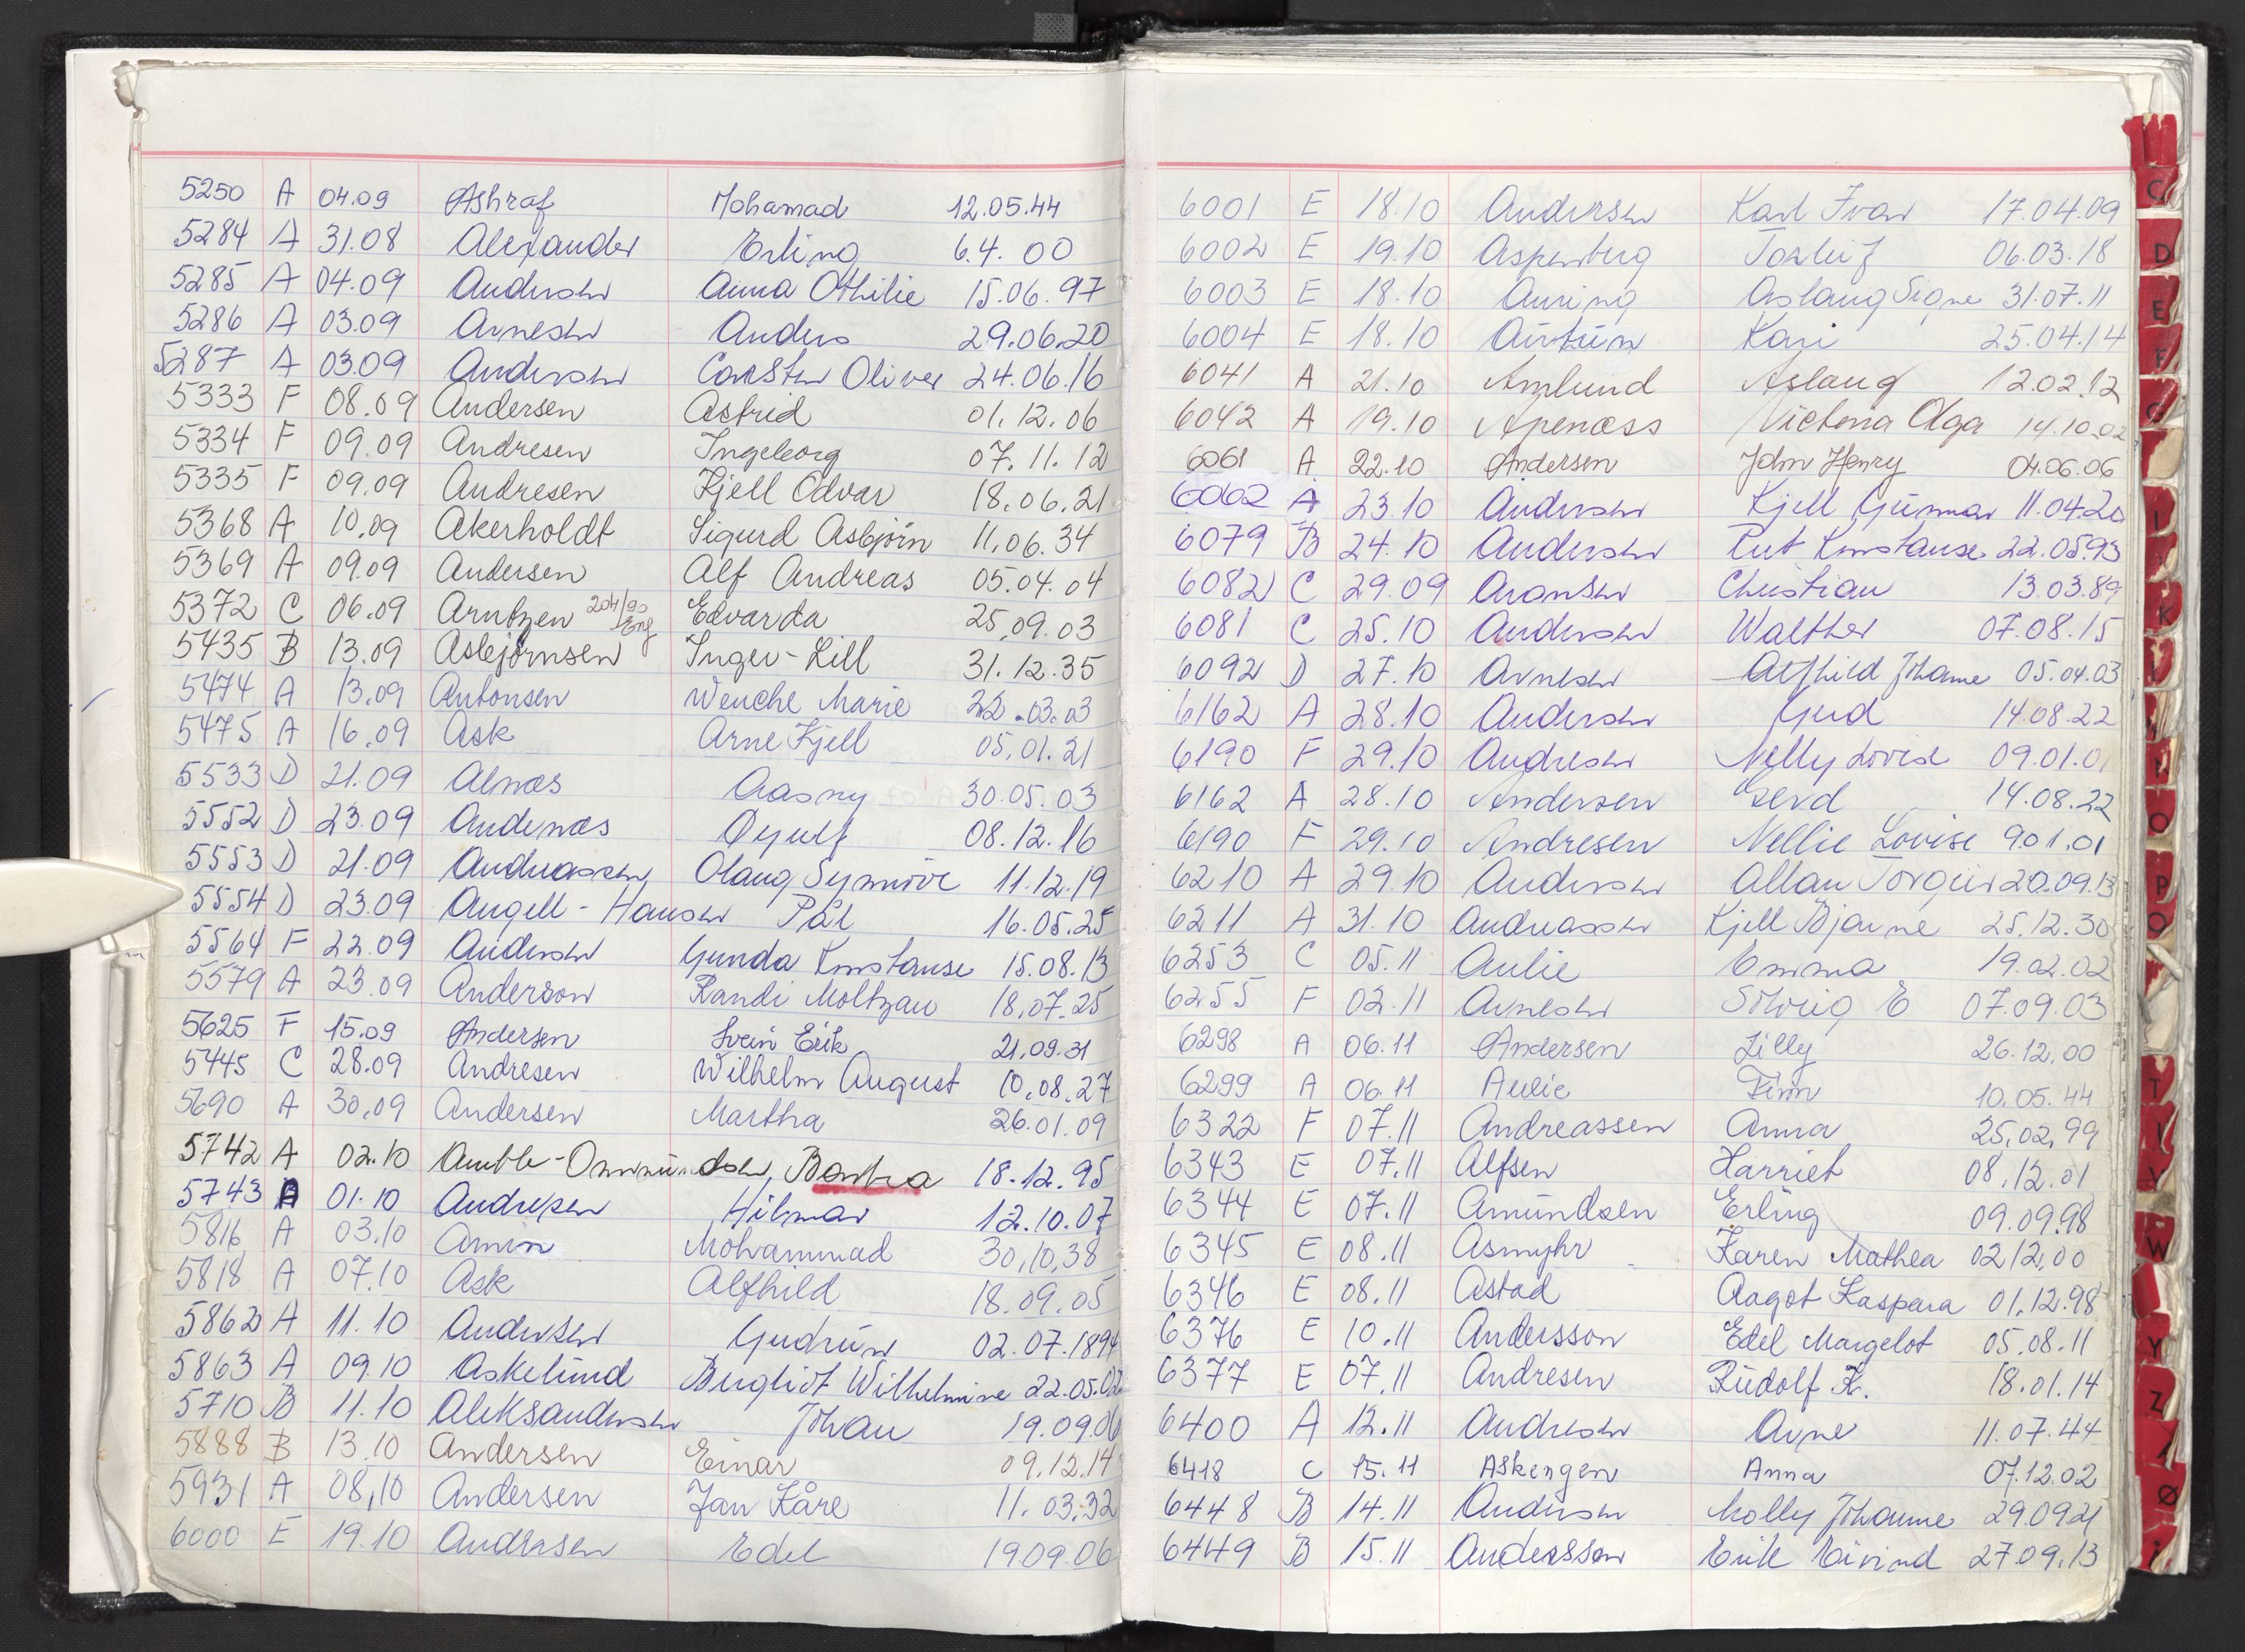 5250 A 04.09 Ashraf Mohamad 12.05.44
5284 A 31.08 Alexander Erling 6.4.00
5285 A 04.09 Andersen Anna Othilie 15.06.97
5286 A 03.09 Arnesen Anders 29.06.20
5287 A 03.09 Andersen Carsten Oliver 24.06.16
5333 F 08.09 Andersen Astrid 01.12.06
5334 F 09.09 Andresen Ingeborg 07.11.12
5335 F 09.09 Andresen Kjell Odvar 18.06.21
5368 A 10.09 Akerholdt Sigurd Asbjørn 11.06.34
5369 A 09.09 Andersen Alf Andreas 05.04.04
5372 C 06.09 Arntzen 204/90 Eng Edvarda 25.09.03
5435 B 13.09 Asbjørnsen Inger-Lill 31.12.35
5474 A 13.09 Antonsen Wenche Marie 22.03.03
5475 A 16.09 Ask Arne Kjell 05.01.21
5533 D 21.09 Alnæs Aasny 30.05.03
5552 D 23.09 Andenæs Øyulf 08.12.16
5553 D 21.09 Andreassen Olaug Synnøve 11.12.19
5554 D 23.09 Angell-Hansen Pål 16.05.25
5564 F 22.09 Andersen Gunda Konstanse 15.08.13
5579 A 23.09 Anderson Randi Moltzau 18.07.25
5625 F 15.09 Andersen Svein Erik 21.09.31
5445 C 28.09 Andresen Wilhelm August 10.08.27
5690 A 30.09 Andersen Martha 26.01.09
5742 A 02.10 Amble-Ommundsen, Bertha 18.12.95
5743 A 01.10 Andresen Hilmar 12.10.07
5816 A 03.10 Amin Mohammad 30,10,38
5818 A 07.10 Ask Alfhild 18.09.05
5862 A 11.10 Andersen Gudrun 02.07.1894
5863 A 09.10 Askelund Bergliot Wilhelmine 22.05.02
5710 B 11.10 Aleksandersen Johan 19.09.06
5888 B 13.10 Andersen Einar 09.12.14
5931 A 08,10 Andersen Jan Kåre 11.03.32
6000 E 19.10 Andresen Edel 19 09.06
6001 E 18.10 Andersen Karl Ivar 17.04.09
6002 E 19.10 Aspenberg Torleif 06.03.18
6003 E 18.10 Auring Aslaug Signe 31.07.11
6004 E 18.10 Airtun Kari 25.04.14
6041 A 21.10 Amlund Aslaug 12.02.12
6042 A 19.10 Apenæss Victoria Olga 14.10.02
6061 A 22.10 Andersen John Henry 04.06.06
6062 A 23.10 Andersen Kjell Gunnar 11.04.20
6079 B 24.10 Andersen Rut Konstanse 22.05.93
6082 C 29.09 Aronsen Christian 13.03.89
6081 C 25.10 Andersen Walther 07.08.15
6092 D 27.10 Arnesen Alfhild Johanne 05.04.03
6162 A 28.10 Andersen Gerd 14.08.22
6190 F 29.10 Andresen Nelly Lovise 09.01.01
6162 A 28.10 Andersen Gerd 14.08.22
6190 F 29.10 Andresen Nellie Lovise 9.01.01
6210 A 29.10 Andersen Allan Torgeir 20.09.13
6211 A 31.10 Andreassen Kjell Bjarne 25.12.30
6253 C 05.11 Aulie Emma 19.02.02
6255 F 02.11 Arnesen Solveig E 07.09.03
6298 A 06.11 Andersen Lilly 26.12.00
6299 A 06.11 Aulie Finn 10.05.44
6322 F 07.11 Andreassen Anna 25,02,99
6343 E 07.11 Alfsen Harriet 08.12.01
6344 E 07.11 Amundsen Erling 09.09.98
6345 E 08.11 Asmyhr Karen Mathea 02,12,00
6346 E 08.11 Astad Aagot Kaspara 01.12.98
6376 E 10.11 Andersson Edel Margelot 05.08.11
6377 E 07.11 Andresen Rudolf K. 18.01.14
6400 A 12.11 Andresen Arne 11.07.44
6418 C 15.11 Askengen Anna 07.12.02
6448 B 14.11 Andersen Molly Johanne 29.09.21
6449 B 15.11 Andersson Erik Eivind 27.09.13
C
D
E
F
G
I
K
N
O
P
Q
T
V
W
Y
Z
Ø